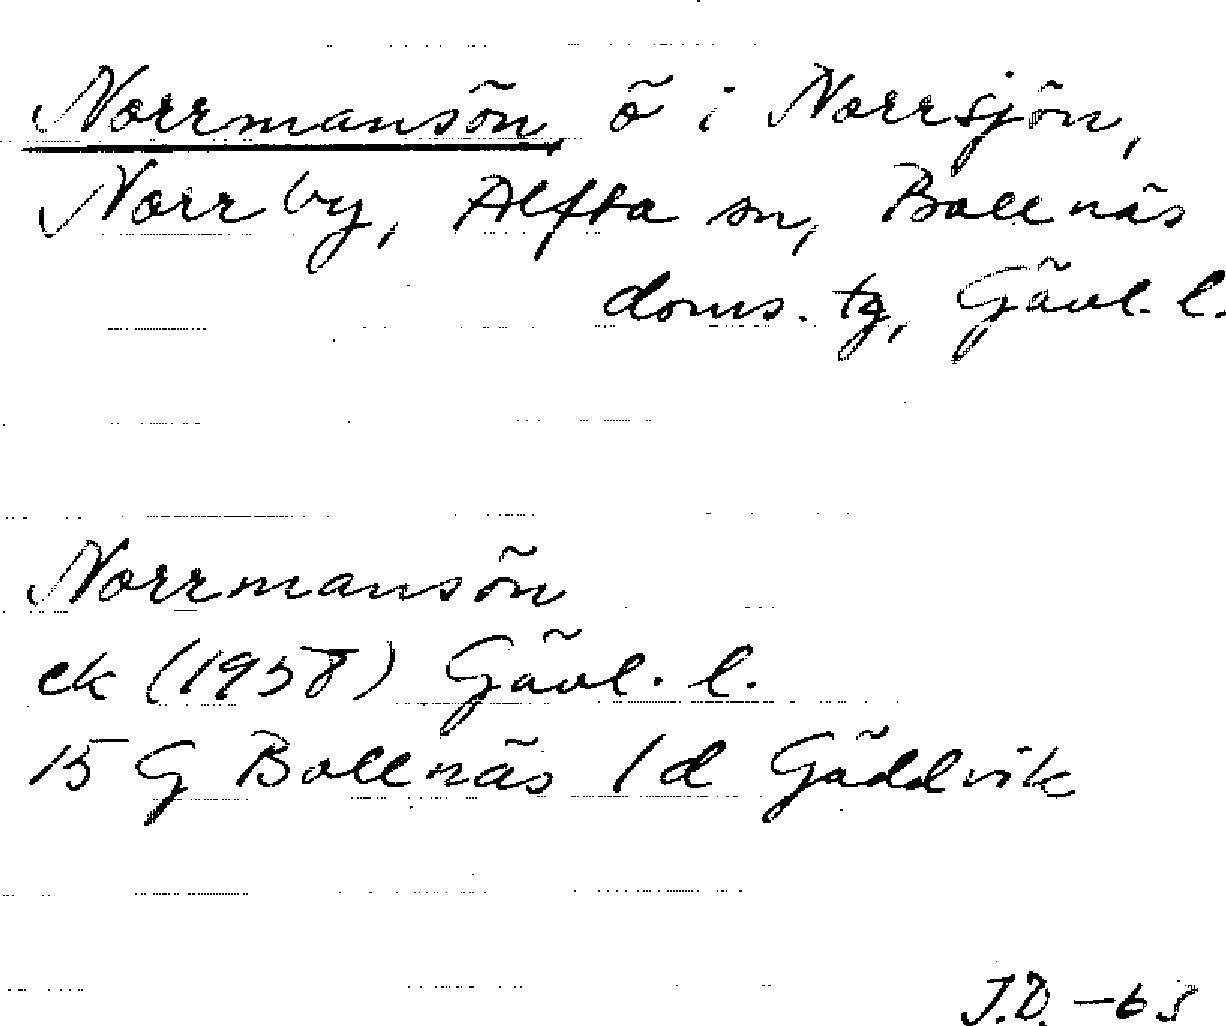 Norrmansön, ö i Norrsjön,
Norrby, Alfta sn, Bollnäs
doms. tg, Gävl. l.
Norrmansön
ek (1958) Gävl. l.
15 G Bollnäs 1d Gäddvik
J.D. -65